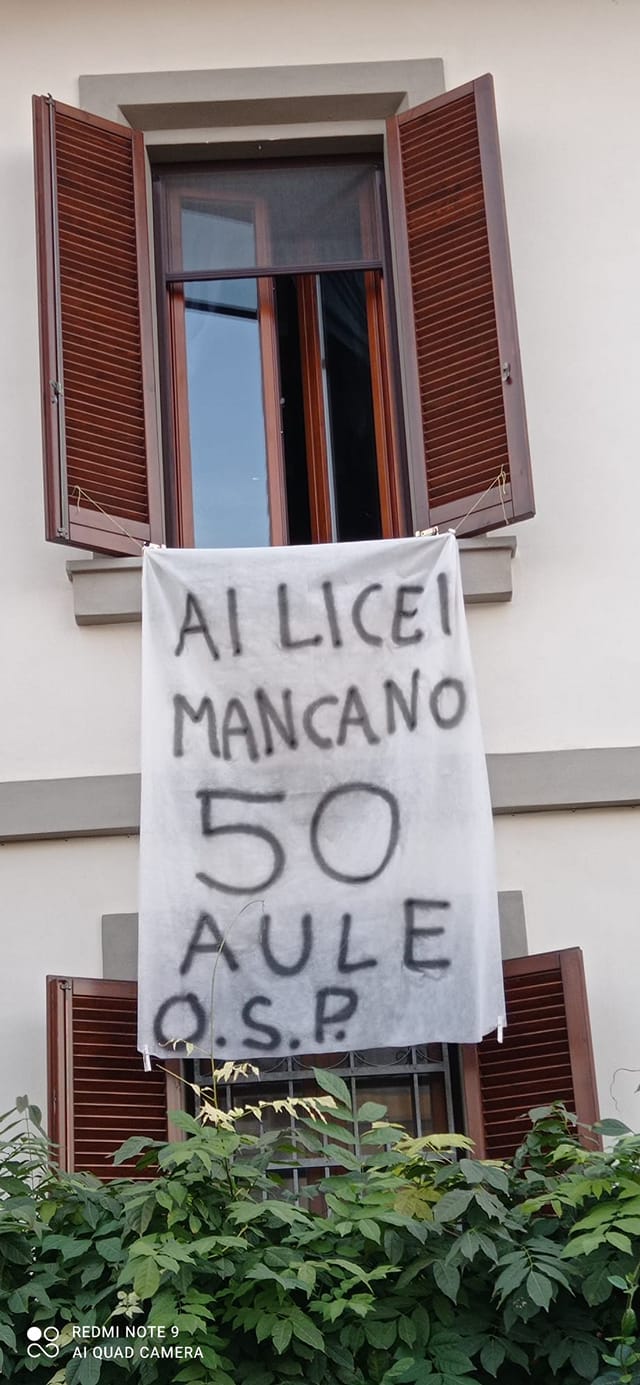 AI LICEI
MANCANO
50
AULE
O.S.P.
REDMI NOTE 9
AI QUAD CAMERA